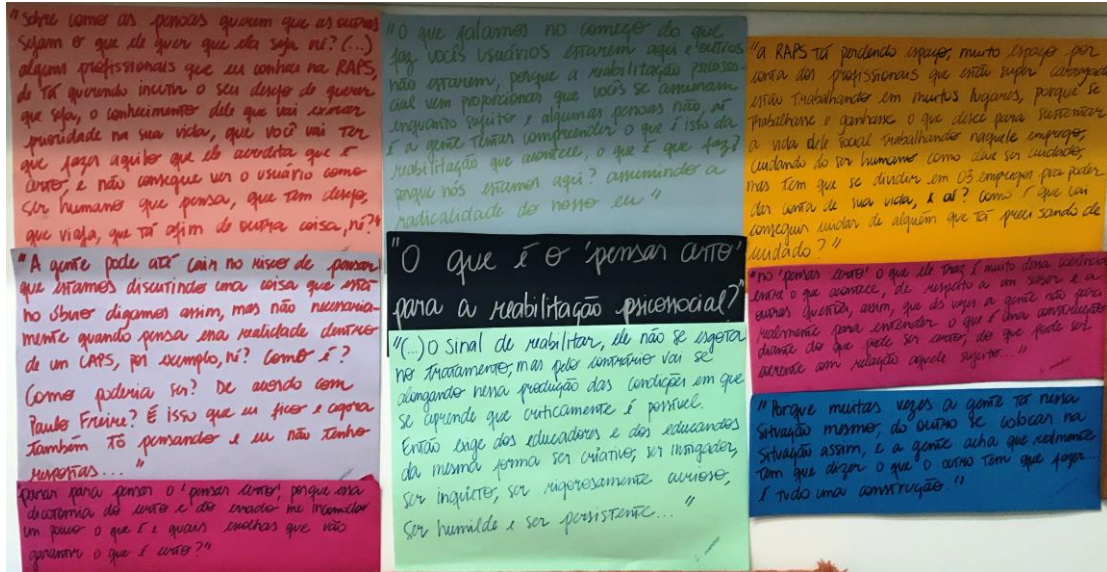 "sobre como as pessoas querem que as outras
sejam o que ele quer que ela seja né? (...)
alguns profissionais que eu conheci na RAPS,
de tá querendo incutir o seu desejo de querer
que seja, o conhecimento dele que vai exercer
prioridade na sua vida, que você vai ter
que fazer aquilo que ele acredita que é
certo, e não consegue ver o usuário como
ser humano que pensa, que tem desejo,
que viaja, que tá afim de outra coisa, né?"
"A gente pode até cair no risco de pensar
que estamos discutindo uma coisa que está
no óbvio digamos assim, mas não necessaria-
mente quando pensa ena realidade dentro
de um CAPS, por exemplo, né? Como é?
Como poderia ser? De acordo com
Paulo Freire? É isso que eu fico e agora
também tô pensando e eu não tenho
respostas..."
parar para pensar o 'pensar certo' porque essa
dicotomia do certo e do errado me incomodar
um pouco o que é e quais escolhas que vão
garantir o que é certo?"
"O que falamos no começo do que
faz vocês usuários estarem aqui e outros
não estarem, porque a reabilitação psicosso-
cial vem proporcionar que vocês se assumam
enquanto sujeito e algumas pessoas não, aí
é a gente tentar compreender o que é isso da
reabilitação que acontece, o que é que faz?
porque nós estamos aqui? assumindo a
radicalidade do nosso eu"
"O que é o 'pensar certo'
para a reabilitação psicossocial?"
"(...) O sinal de reabilitar, ele não se esgota
no tratamento, mas pelo contrário vai se
alongando nessa produção das condições em que
se aprende que criticamente é possível.
Então exige dos educadores e dos educandos
da mesma forma ser criativo, ser instigador,
ser inquieto, ser rigorosamente curioso,
ser humilde e ser persistente..."
"a RAPS tá perdendo espaço, muito espaço por
conta dos profissionais que estão super carregados
estão trabalhando em muitos lugares, porque se
trabalhasse e ganhasse o que desse para sustentar
a vida dele social trabalhando naquele emprego,
cuidando do ser humano como deve ser cuidado,
mas tem que se dividir em 03 empregos pra poder
dar conta de sua vida, e aí? como é que vai
conseguir cuidar de alguém que tá precisando de
cuidado?"
"no 'pensar certo' o que ele traz é muito dessa coerência
entre o que acontece, de respeito a um saber e a
outras questões, assim, que às vezes a gente não para
realmente para entender o que é uma construção
diante do que pode ser certo, do que pode ser
coerente com relação aquele sujeito..."
"Porque muitas vezes a gente tá nessa
situação mesmo, do outro se colocar na
situação assim, e a gente acha que realmente
tem que dizer o que o outro tem que fazer...
É tudo uma construção."